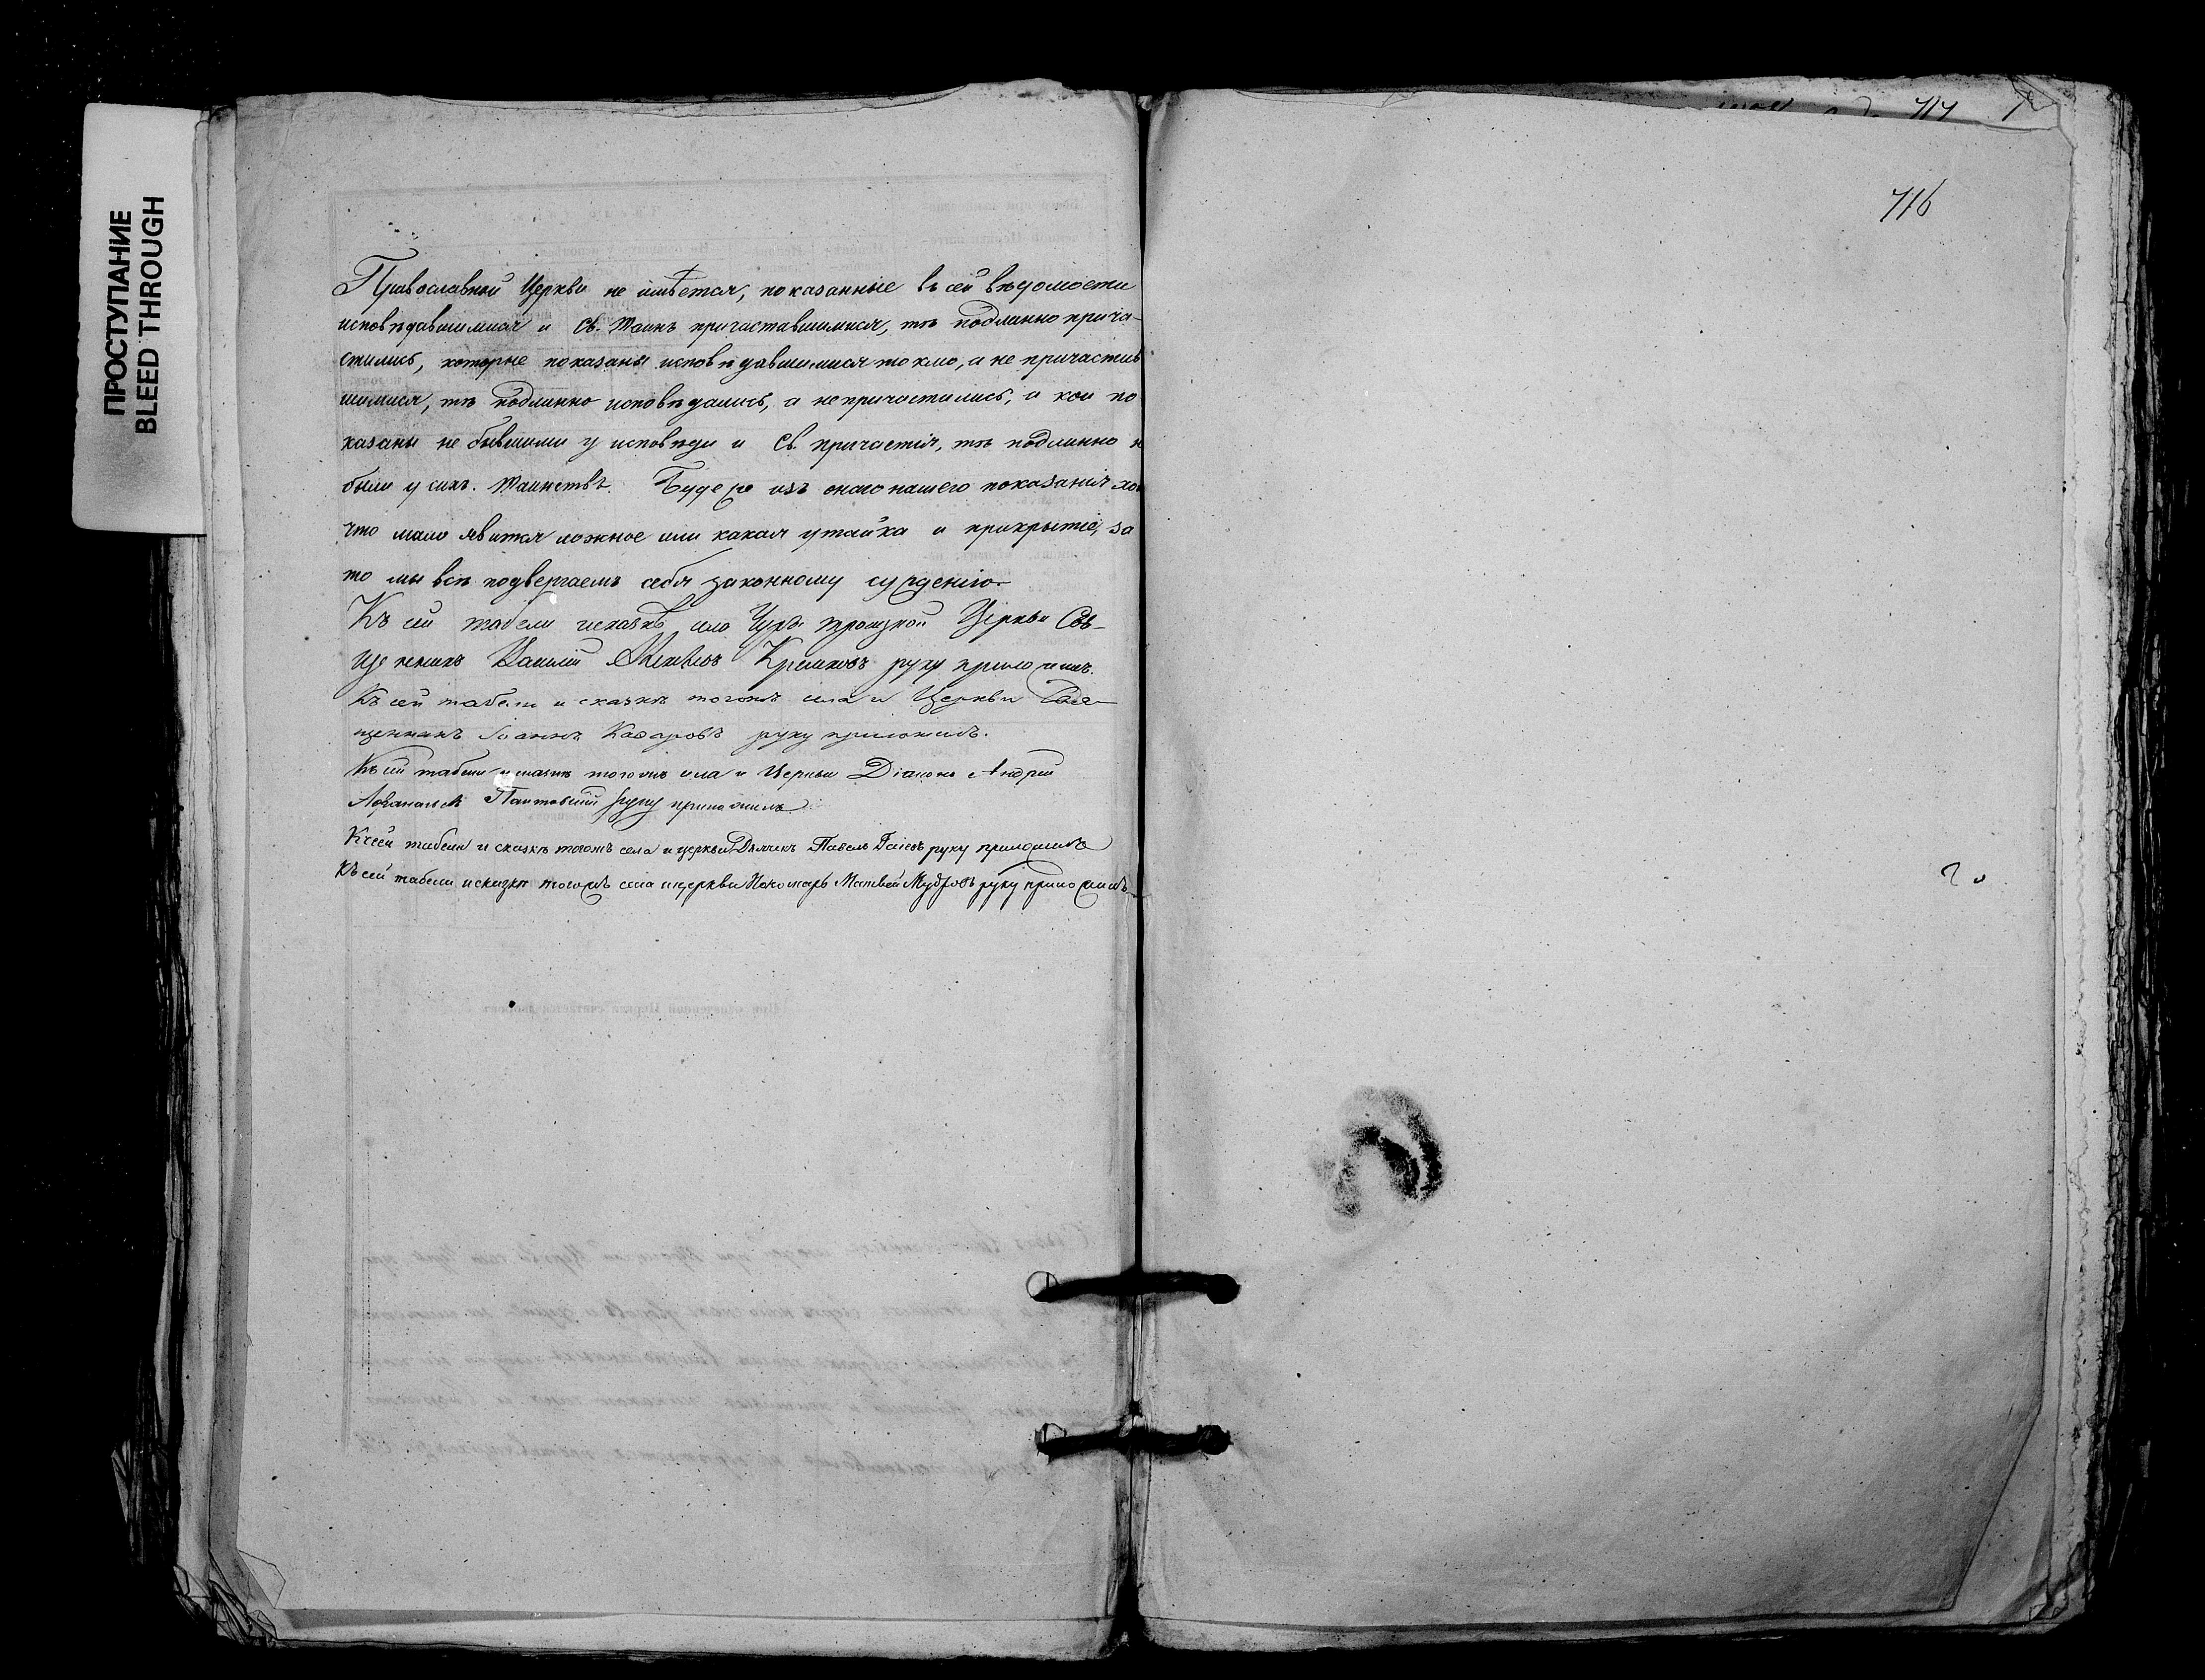 ПРОСТУПАНИЕ
BLEED THROUGH
716
Православной Церкви не имѣется, показанные въ сей вѣдомости
исповѣдавшимися и Св. Таинъ причаставшимися, тѣ подлинно прича-
стились, которые показаны исповѣдавшимися токмо, а не причастив
шимися, тѣ подлинно исповѣдались, а не причастились, а кои по
казаны не бывшими у исповѣди и Св. причастія, тѣ подлинно н
были у сихъ Таинствъ. Будеже изъ онаго нашего показанія хо
что мало явится ложное или какая утайка и прикрытіе, за
то мы всѣ подвергаемъ себя законному сужденію.
Къ сей табели и сказкѣ села Троицкой Церкви Свя-
щенникъ Василій руку приложилъ.
Къ сей табели и сказкѣ тогожъ села и Церкви Свя-
щенникъ Іоаннъ руку приложилъ.
Къ сей табели и сказкѣ тогожъ села и Церкви Діаконъ Андрей
руку приложилъ.
Къ сей табели и сказкѣ тогожъ села и церкви Дьячекъ Павелъ руку приложилъ
Къ сей табели и сказкѣ тогожъ села и церкви Пономарь Матвей Мудровъ руку приложилъ